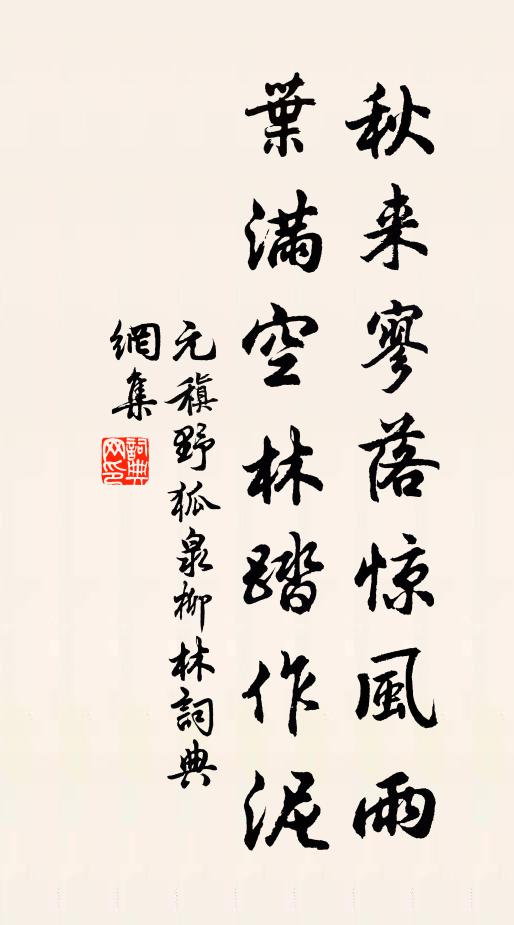 秋来寥落惊風雨
葉滿空林踏作泥
元稹野狐泉柳林詞典
網集
詞典网印